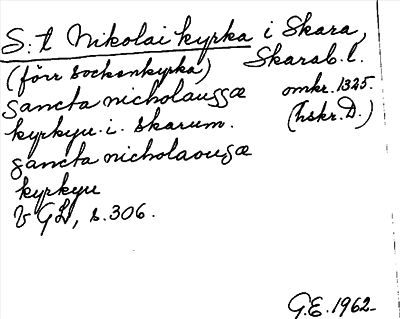 S:t Nikolai kyrka i Skara,
(förr sockenkyrka) Skarab.l.
sancta nicholaussæ omkr. 1325.
kyrkyu. i. skarum. (hskr. D.)
sancta nicholaousæ
kyrkyu
V GL, s. 306.
G.E. 1962.